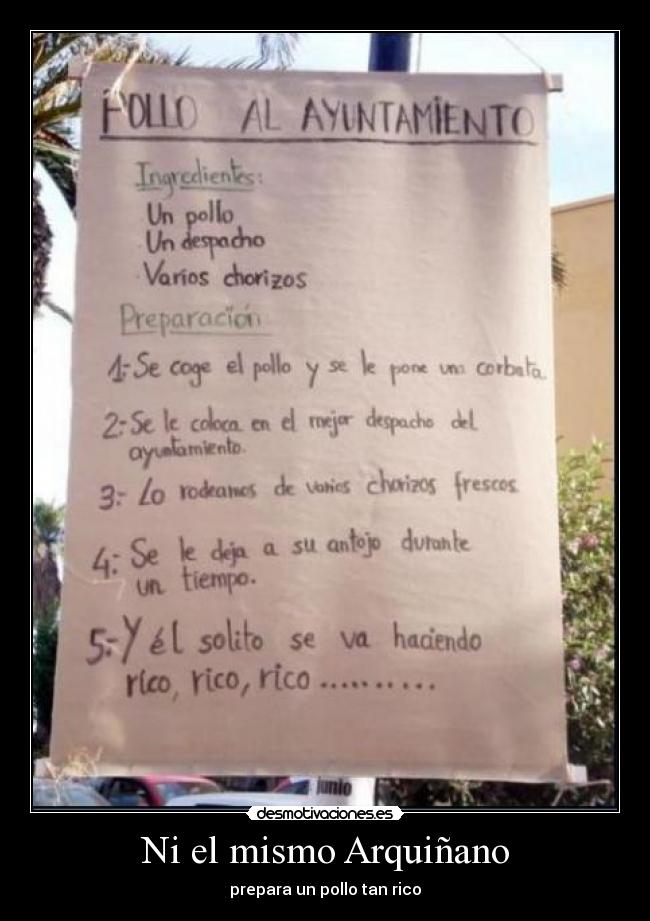 POLLO AL AYUNTAMIENTO
Ingredientes:
Un pollo
Un despacho
Varios chorizos
Preparación:
1:- Se coge el pollo y se le pone una corbata.
2:- Se le coloca en el mejor despacho del
ayuntamiento.
3:- Lo rodeamos de varios chorizos frescos.
4:- Se le deja a su antojo durante
un tiempo.
5:- Y él solito se va haciendo
rico, rico, rico ..........
junio
desmotivaciones.es
Ni el mismo Arquiñano
prepara un pollo tan rico